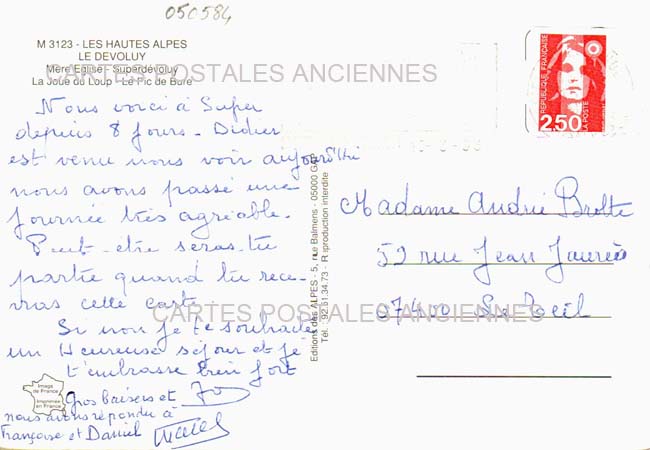 050584
M 3123 - LES HAUTES ALPES
LE DEVOLUY
Mère Eglise - Superdévoluy
La Joue du Loup - Le Pic de Bure
CARTES POSTALES ANCIENNES
REPUBLIQUE FRANÇAISE
LA POSTE
2,50
Nous voici à Super
depuis 8 jours - Didier
est venu nous voir aujourd'hui
nous avons passé une
journée très agréable.
Peut-être seras-tu
partie quand tu rece-
vras cette carte
Si non je te souhaite
un Heureuse séjour et je
t'embrasse bien fort
Gros baisers et Jo
nous avons répondu à
Françoise et Daniel
Image de France
Imprimée en France
Editions des ALPES - 5, rue Balmens - 05000 GAP
Tél. : 92.51.34.73 - R production interdite
Madame André Brotte
52 rue Jean Jaurès
07400 Le Teil
CARTES POSTALES ANCIENNES